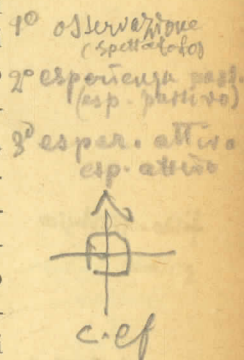 1º osservazione
(spettatore)
2º esperienza pass.
(esp. passivo)
3º esper. attiva
esp. attivo
c. ef